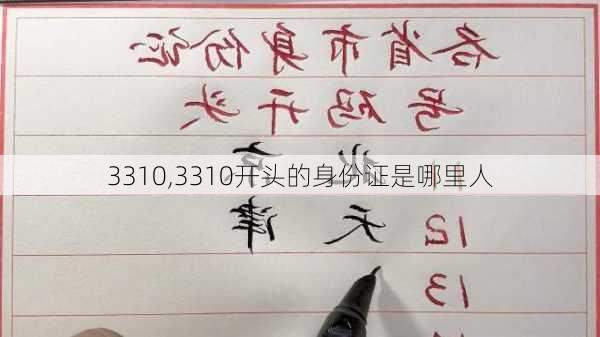 各省市身份证
号码开头
11 北京
3310,3310开头的身份证是哪里人
12 天津
13